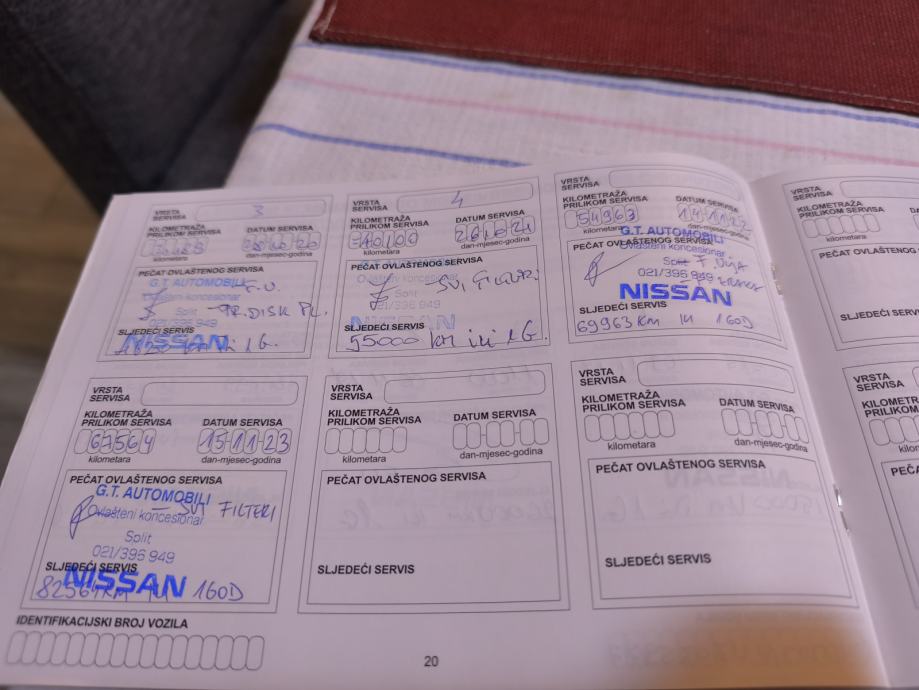 VRSTA SERVISA 3
KILOMETRAŽA PRILIKOM SERVISA
DATUM SERVISA
kilometara
dan-mjesec-godina
PEČAT OVLAŠTENOG SERVISA
G.T. AUTOMOBILI
Ovlašteni koncesionar
Split
021/396 949
NISSAN
SLJEDEĆI SERVIS
VRSTA SERVISA 4
KILOMETRAŽA PRILIKOM SERVISA
DATUM SERVISA
40100
26 10 21
kilometara
dan-mjesec-godina
PEČAT OVLAŠTENOG SERVISA
Ovlašteni koncesionar
- SVI FILTERI
Split
021/396 949
NISSAN
SLJEDEĆI SERVIS
55000 km ili 1G.
VRSTA SERVISA
KILOMETRAŽA PRILIKOM SERVISA
DATUM SERVISA
54963
14 11 22
kilometara
dan-mjesec-godina
G.T. AUTOMOBILI
PEČAT OVLAŠTENOG SERVISA
Ovlašteni koncesionar
Split
021/396 949
NISSAN
SLJEDEĆI SERVIS
69963 KM ILI 1GOD
VRSTA SERVISA
KILOMETRAŽA PRILIKOM SERVISA
kilometara
PEČAT OVLAŠTENOG
SLJEDEĆI SERV
VRSTA SERVISA
KILOMETRAŽA PRILIKOM SERVISA
DATUM SERVISA
67564
15 11 23
kilometara
dan-mjesec-godina
PEČAT OVLAŠTENOG SERVISA
G.T. AUTOMOBILI
- SVI FILTERI
Ovlašteni koncesionar
Split
021/396 949
SLJEDEĆI SERVIS
NISSAN
82564KM ILI 1GOD
VRSTA SERVISA
KILOMETRAŽA PRILIKOM SERVISA
DATUM SERVISA
kilometara
dan-mjesec-godina
PEČAT OVLAŠTENOG SERVISA
SLJEDEĆI SERVIS
VRSTA SERVISA
KILOMETRAŽA PRILIKOM SERVISA
DATUM SERVISA
kilometara
dan-mjesec-godina
PEČAT OVLAŠTENOG SERVISA
SLJEDEĆI SERVIS
VRSTA SERVISA
IDENTIFIKACIJSKI BROJ VOZILA
20